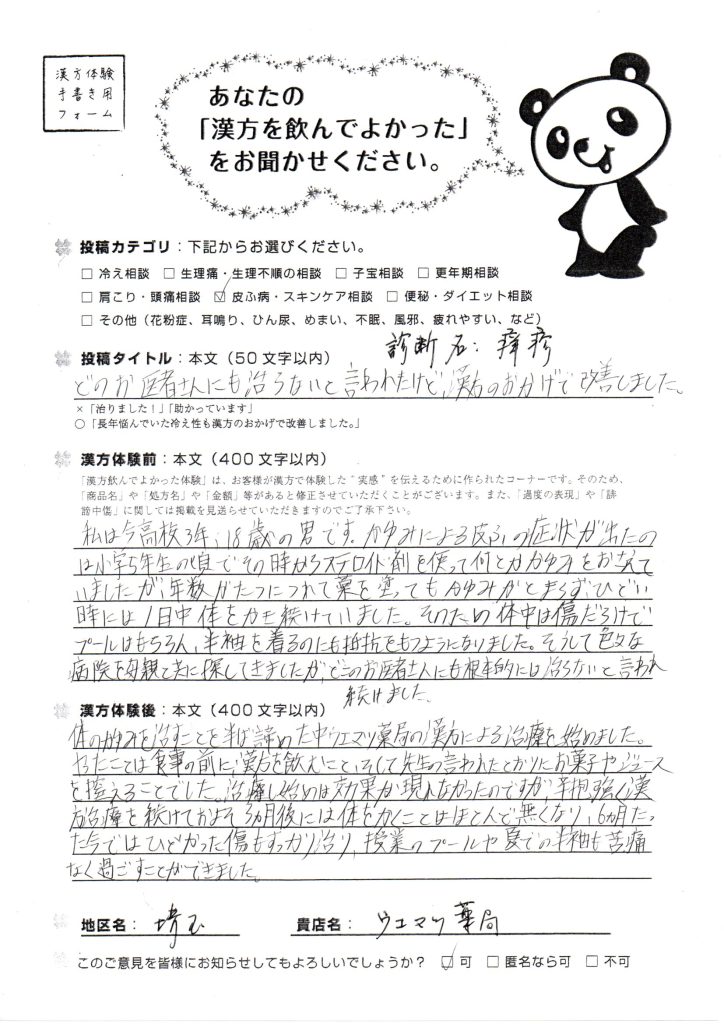 漢方体験
手書き用
フォーム
あなたの
「漢方を飲んでよかった」
をお聞かせください。
投稿カテゴリ：下記からお選びください。
□ 冷え相談 □ 生理痛・生理不順の相談 □ 子宝相談 □ 更年期相談
□ 肩こり・頭痛相談 ☑ 皮ふ病・スキンケア相談 □ 便秘・ダイエット相談
□ その他（花粉症、耳鳴り、ひん尿、めまい、不眠、風邪、疲れやすい、など）
診断名：痒疹
投稿タイトル：本文（50文字以内）
どのお医者さんにも治らないと言われたけど漢方のおかげで改善しました。
×「治りました！」「助かっています」
○「長年悩んでいた冷え性も漢方のおかげで改善しました。」
漢方体験前：本文（400文字以内）
「漢方飲んでよかった体験」は、お客様が漢方で体験した“実感”を伝えるために作られたコーナーです。そのため、
「商品名」や「処方名」や「金額」等があると修正させていただくことがございます。また、「過度の表現」や「誹
謗中傷」に関しては掲載を見送らせていただきますのでご了承下さい。
私は今高校3年、18歳の男です。かゆみによる皮ふの症状が出たの
は小学5年生の頃でその時からステロイド剤を使って何とかかゆみをおさえて
いましたが、年数がたつにつれて薬を塗ってもかゆみがとまらず、ひどい
時には1日中体をかき続けていました。そのため体中は傷だらけで
プールはもちろん、半袖を着るのにも抵抗をもつようになりました。そうして色々な
病院を母親と共に探してきましたが、どこのお医者さんにも根本的には治らないと言われ
続けました。
漢方体験後：本文（400文字以内）
体のかゆみを治すことを半ば諦めた中ウエマツ薬局の漢方による治療を始めました。
やったことは食事の前に漢方を飲むこと、そして先生の言われたとおりにお菓子やジュース
を控えることでした。治療し始めは効果が現れなかったのですが、辛抱強く漢
方治療を続けておよそ3ヵ月後には体をかくことはほとんど無くなり、6ヵ月たっ
た今ではひどかった傷もすっかり治り、授業のプールや夏での半袖も苦痛
なく過ごすことができました。
地区名： 埼玉 貴店名： ウエマツ薬局
このご意見を皆様にお知らせしてもよろしいでしょうか？ ☑ 可 □ 匿名なら可 □ 不可